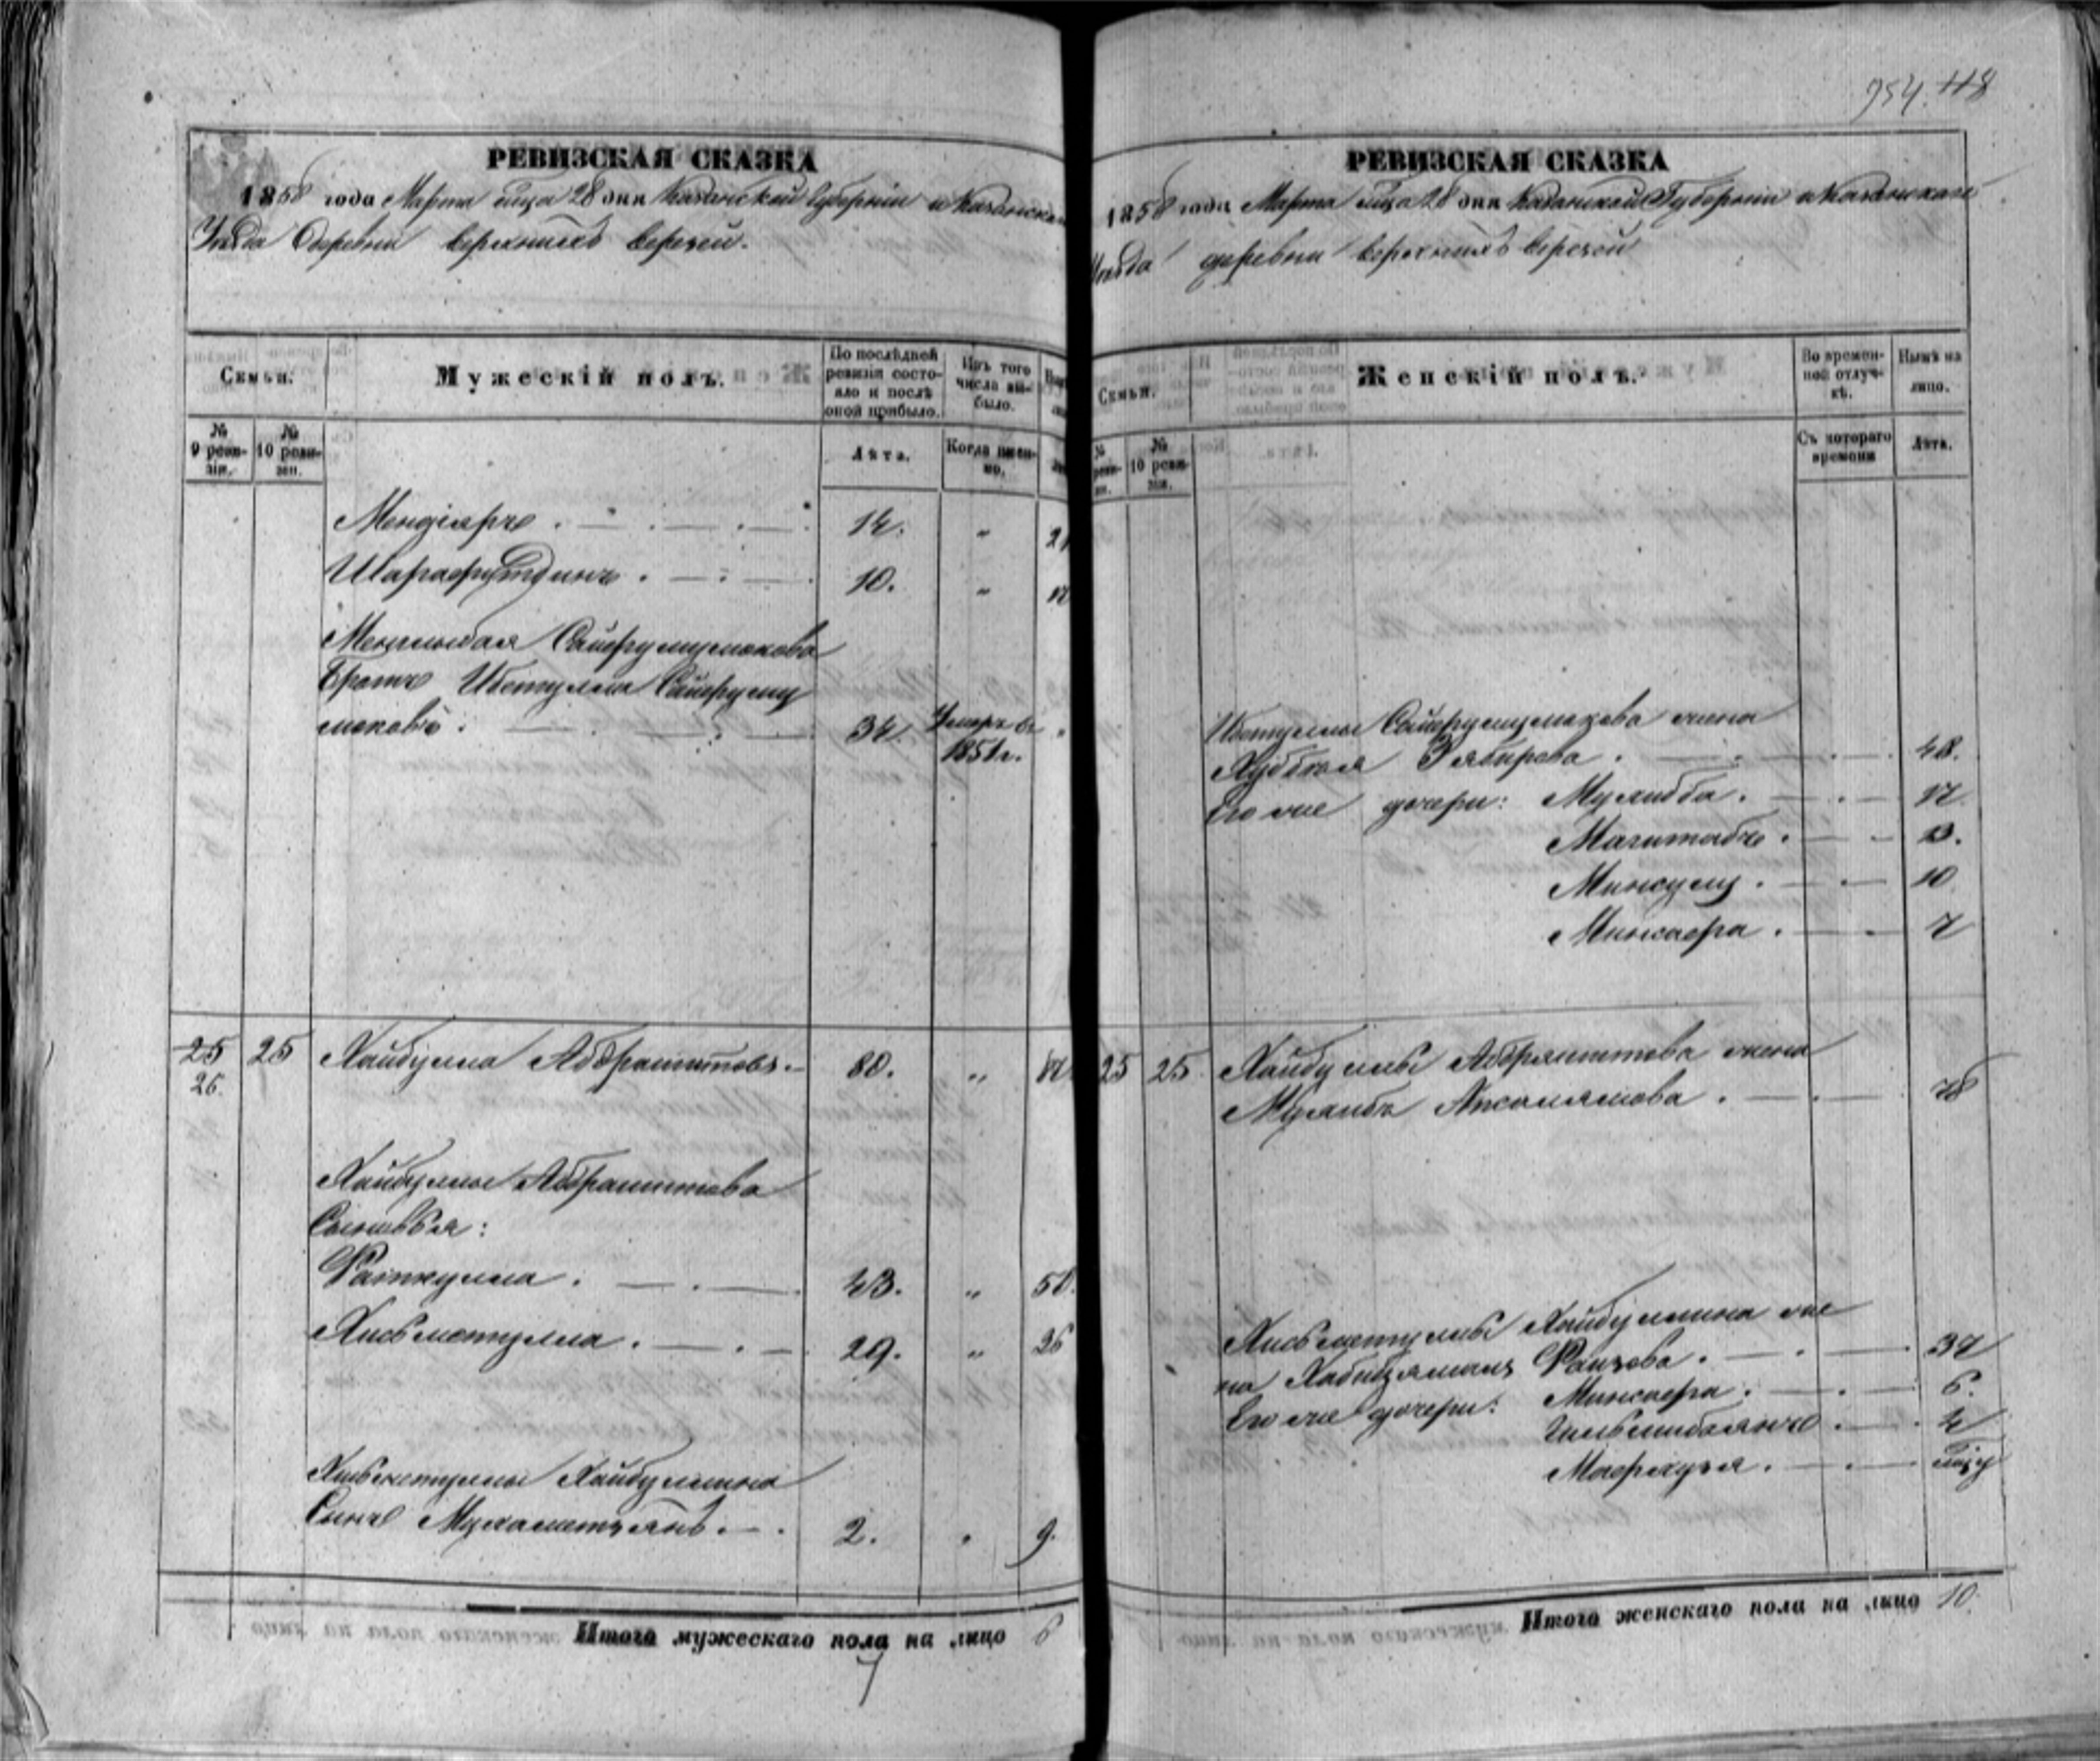 РЕВИЗСКАЯ СКАЗКА
1858 года Марта м͠ца 28 дня Казанской Губерніи и Казанска
Уѣзда деревни Верхнихъ Верезей.
Семьи.
Мужескій полъ.
По послѣдней ревизіи состояло и послѣ оной прибыло.
Изъ того числа выбыло.
№ 9 ревизіи.
№ 10 ревизіи.
Лѣта.
Когда именно.
Мендіяръ 14. " 21
Шарафутдинъ 10. " 17
Сайфулмулюкова
Братъ Ибетулла Сайфулму
люковъ 34. Умеръ въ 1851 г.
25 26. 25 Хайбулла Абдрашитовъ 80. " 87
Хайбуллы Абдрашитова
Сыновья:
Раткулла 43. " 50.
Хисьметулла 29. " 36
Хисьметуллы Хайбуллина
Сынъ Мухаметзянъ 2. " 9.
Итого мужескаго пола на лицо 6
7
954. 118
РЕВИЗСКАЯ СКАЗКА
1858 года Марта м͠ца 28 дня Казанской Губерніи и Казанскаго
Уѣзда деревни Верхнихъ Верезей
Семьи.
Женскій полъ.
Во временной отлучкѣ.
Нынѣ на лицо.
№ 10 ревизіи.
Съ котораго времени
Лѣта.
Ибетуллы Сайфулмулюкова жена
Зябирова 48.
Его же дочери: Мулибба 17
Магитабъ 13.
10
Минсафа 7
25 25 Хайбуллы Абдряшитова жена
Апсалямова 78
Хисьметуллы Хайбуллина же
на Хабибзямалъ Фаизова 37
Его же дочери: Минсафа 6.
Гильмибаянъ 4
Мафтуза
Итого женскаго пола на лицо 10.